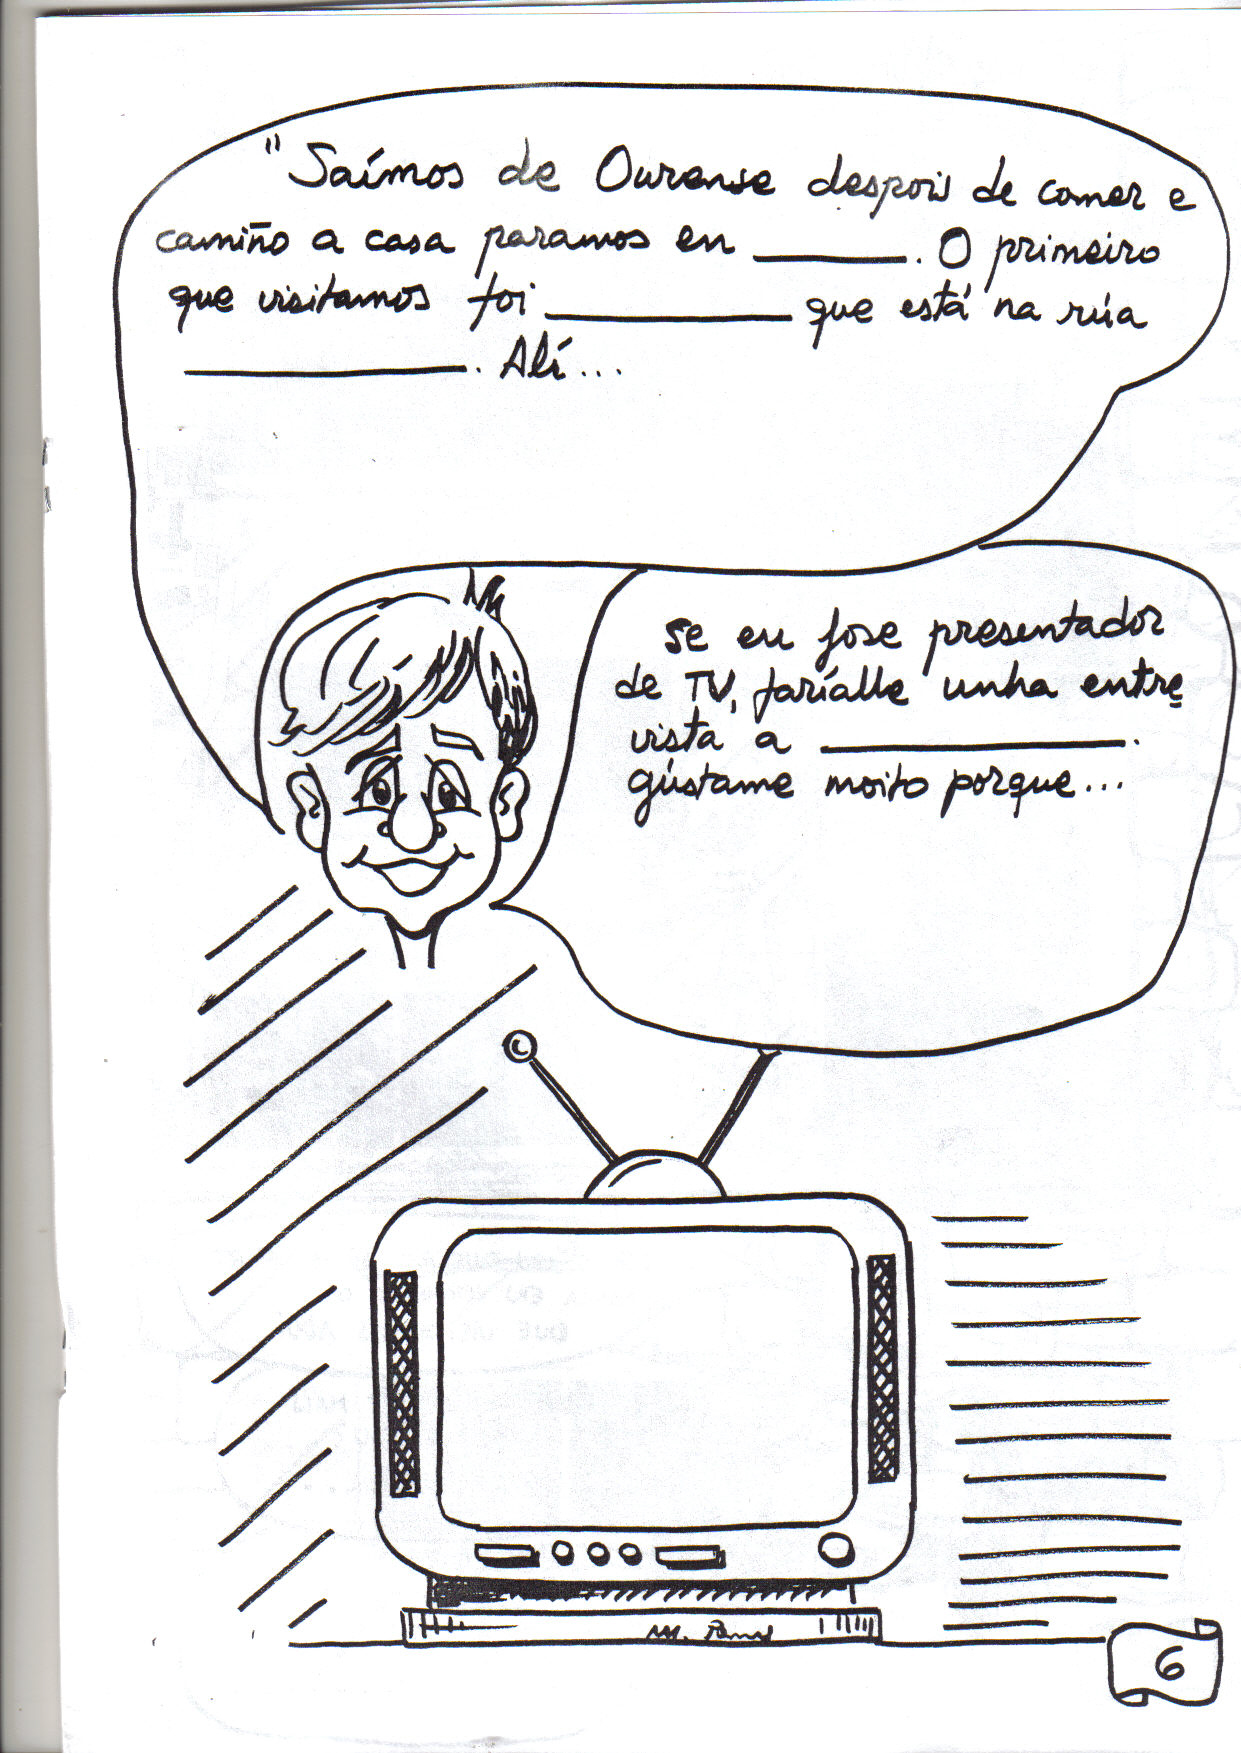 "Saímos de Ourense despois de comer e
camiño a casa paramos en ________. O primeiro
que visitamos foi ____________ que está na rúa
______________. Alí...
se eu fose presentador
de TV, faríalle unha entre
vista a _______________.
gústame moito porque...
6